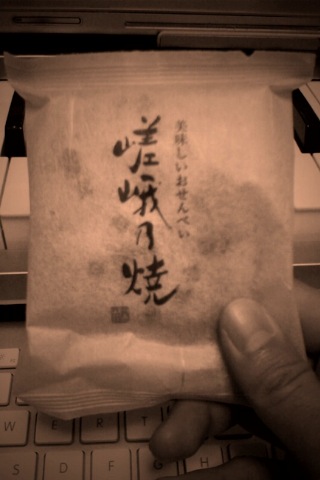 美味しいおせんべい
嵯峨乃焼
W E R T
S D F G H